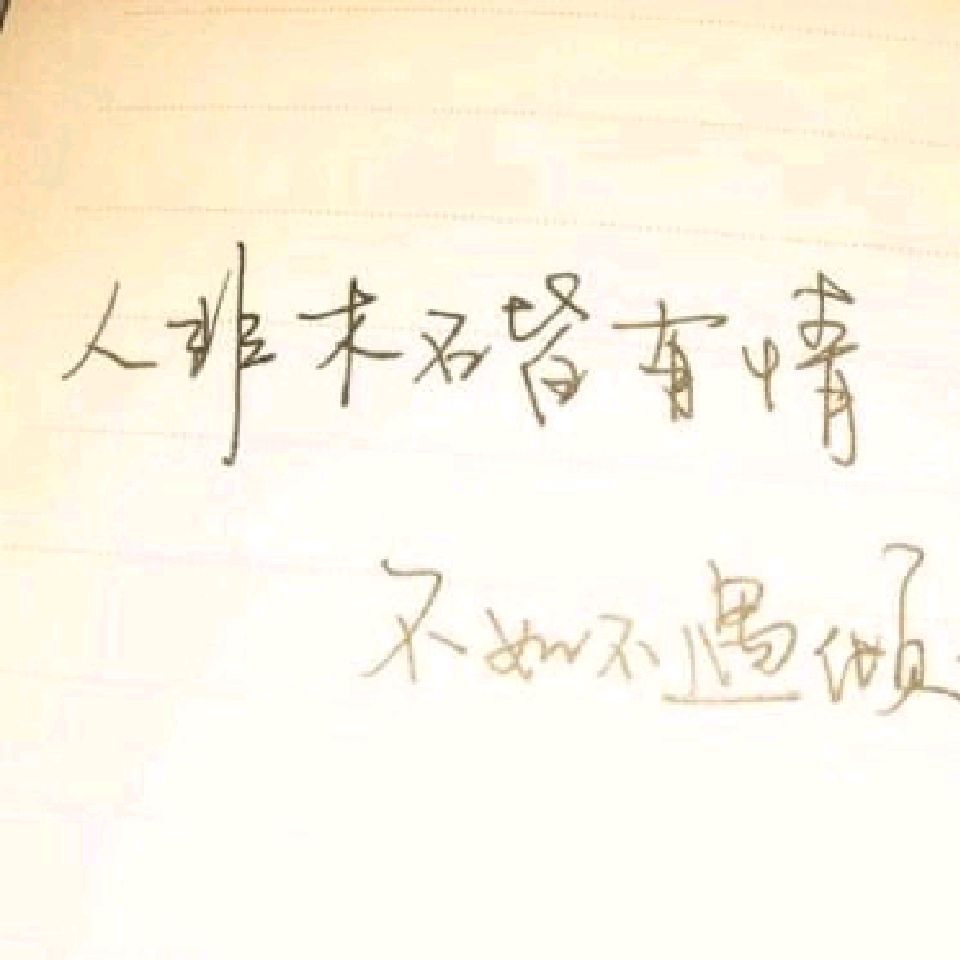 人非木石皆有情
不如不遇倾